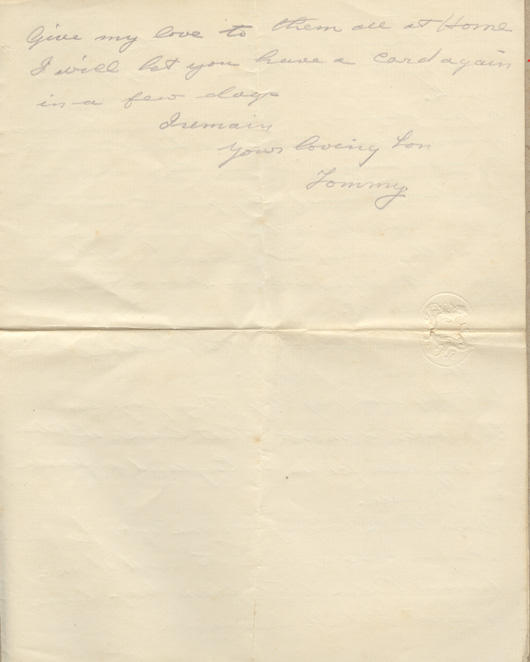 Give my love to them all at Home
I will let you have a card again
in a few days
I remain
Your loving Son
Tommy